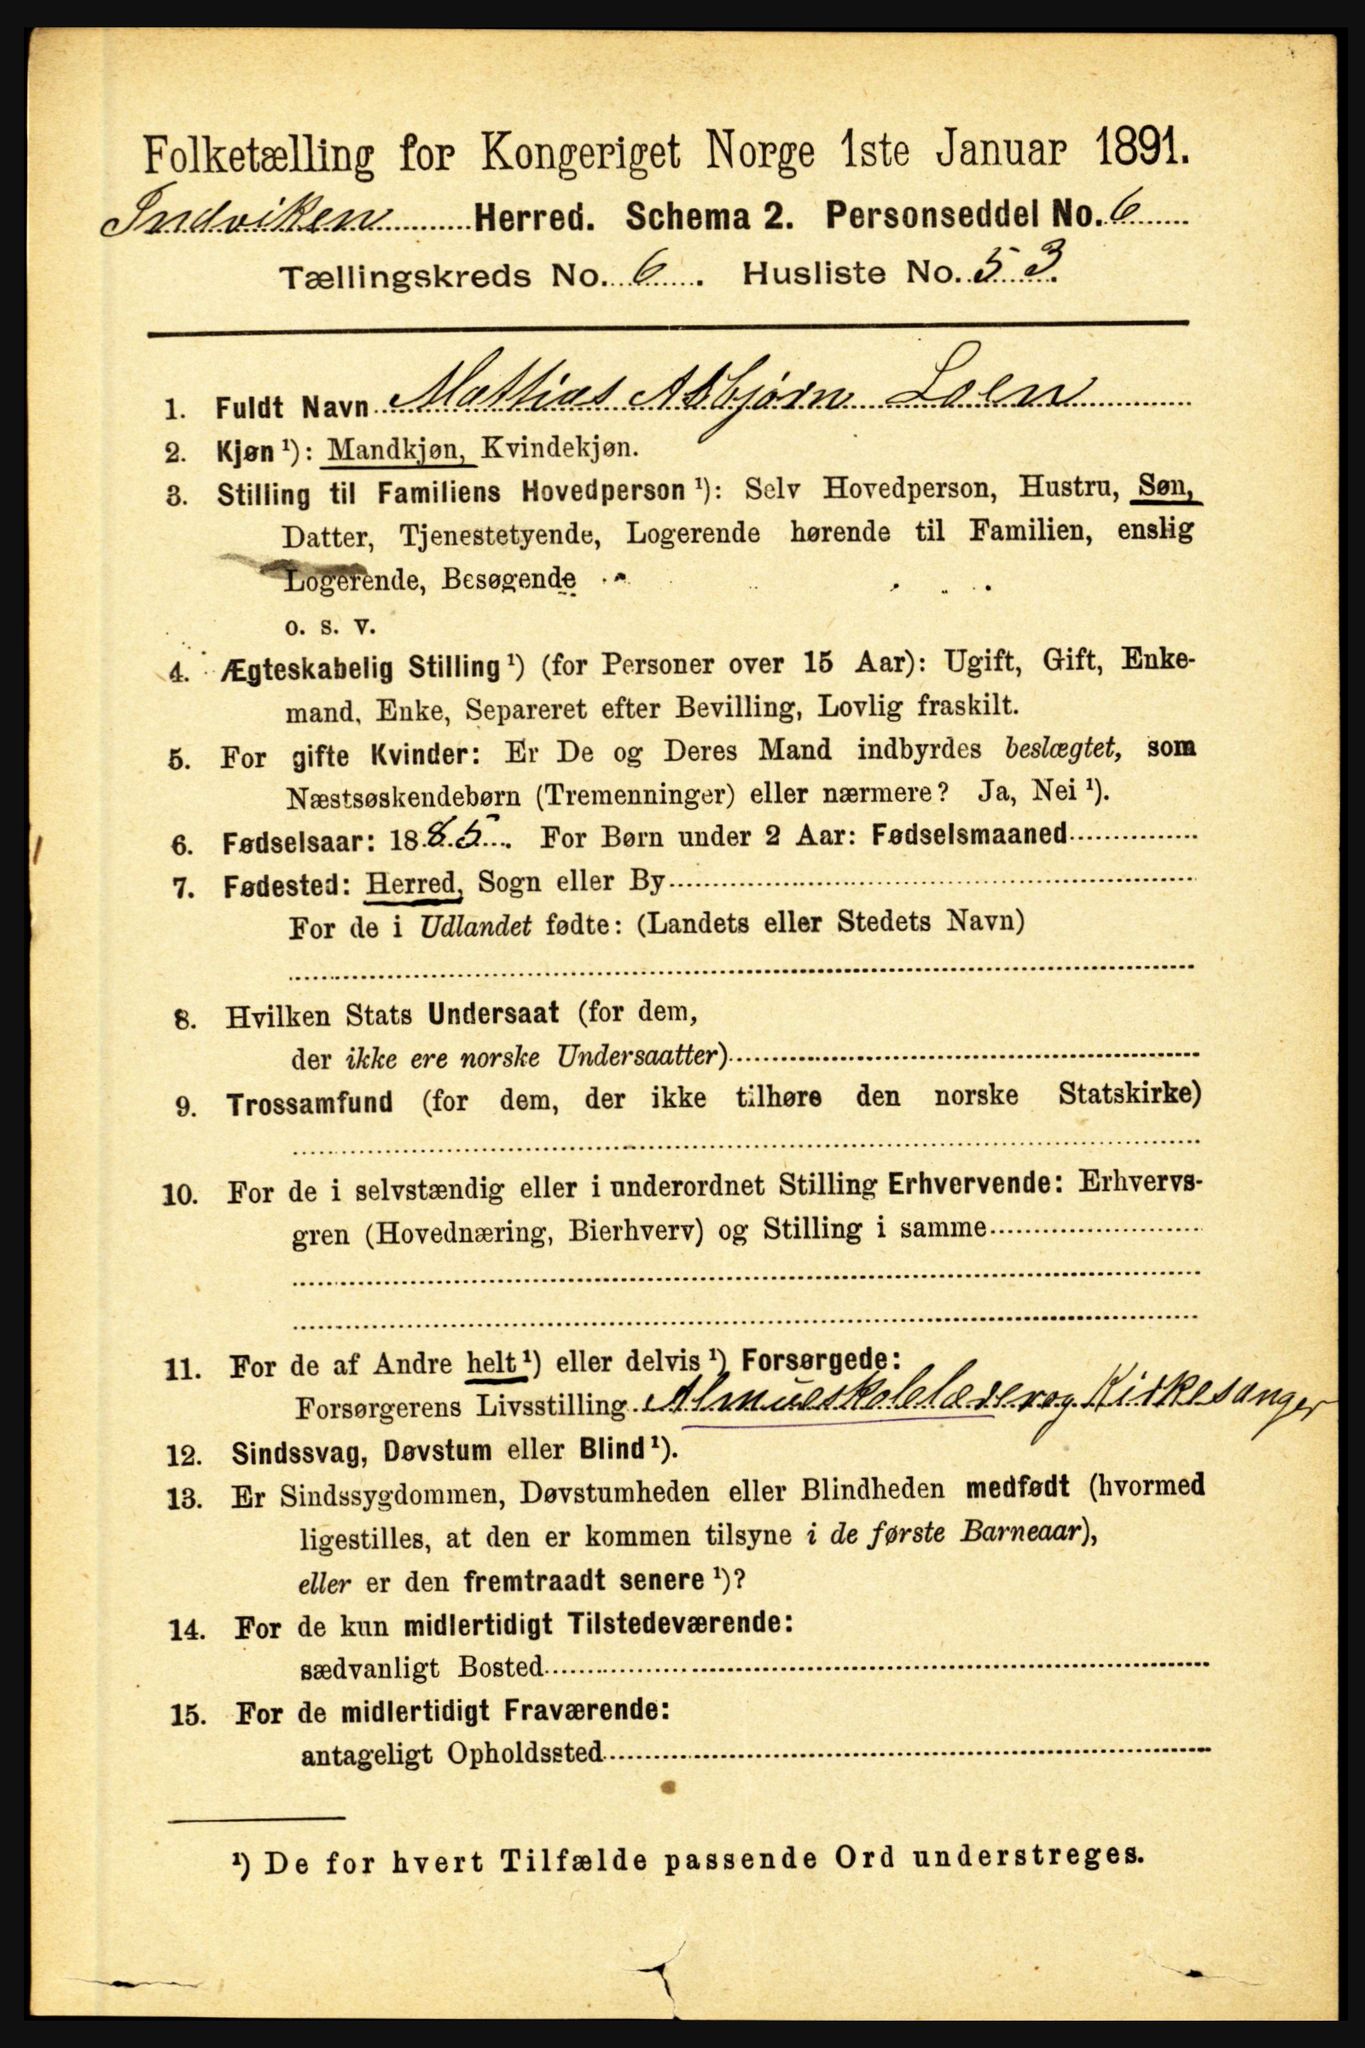 Folketælling for Kongeriget Norge 1ste Januar 1891.
Indviken Herred. Schema 2. Personseddel No. 6
Tællingskreds No. 6. Husliste No. 53
1. Fuldt Navn Mathias Asbjørn Loen
2. Kjøn ¹): Mandkjøn, Kvindekjøn.
3. Stilling til Familiens Hovedperson ¹): Selv Hovedperson, Hustru, Søn,
Datter, Tjenestetyende, Logerende hørende til Familien, enslig
Logerende, Besøgende
o. s. v.
4. Ægteskabelig Stilling ¹) (for Personer over 15 Aar): Ugift, Gift, Enke-
mand, Enke, Separeret efter Bevilling, Lovlig fraskilt.
5. For gifte Kvinder: Er De og Deres Mand indbyrdes beslægtet, som
Næstsøskendebørn (Tremenninger) eller nærmere? Ja, Nei ¹).
6. Fødselsaar: 1885. For Børn under 2 Aar: Fødselsmaaned
7. Fødested: Herred, Sogn eller By
For de i Udlandet fødte: (Landets eller Stedets Navn)
8. Hvilken Stats Undersaat (for dem,
der ikke ere norske Undersaatter)
9. Trossamfund (for dem, der ikke tilhøre den norske Statskirke)
10. For de i selvstændig eller i underordnet Stilling Erhvervende: Erhvervs-
gren (Hovednæring, Bierhverv) og Stilling i samme
11. For de af Andre helt ¹) eller delvis ¹) Forsørgede:
Forsørgerens Livsstilling Almueskolelærer og Kirkesanger
12. Sindssvag, Døvstum eller Blind ¹).
13. Er Sindssygdommen, Døvstumheden eller Blindheden medfødt (hvormed
ligestilles, at den er kommen tilsyne i de første Barneaar),
eller er den fremtraadt senere ¹)?
14. For de kun midlertidigt Tilstedeværende:
sædvanligt Bosted
15. For de midlertidigt Fraværende:
antageligt Opholdssted
¹) De for hvert Tilfælde passende Ord understreges.